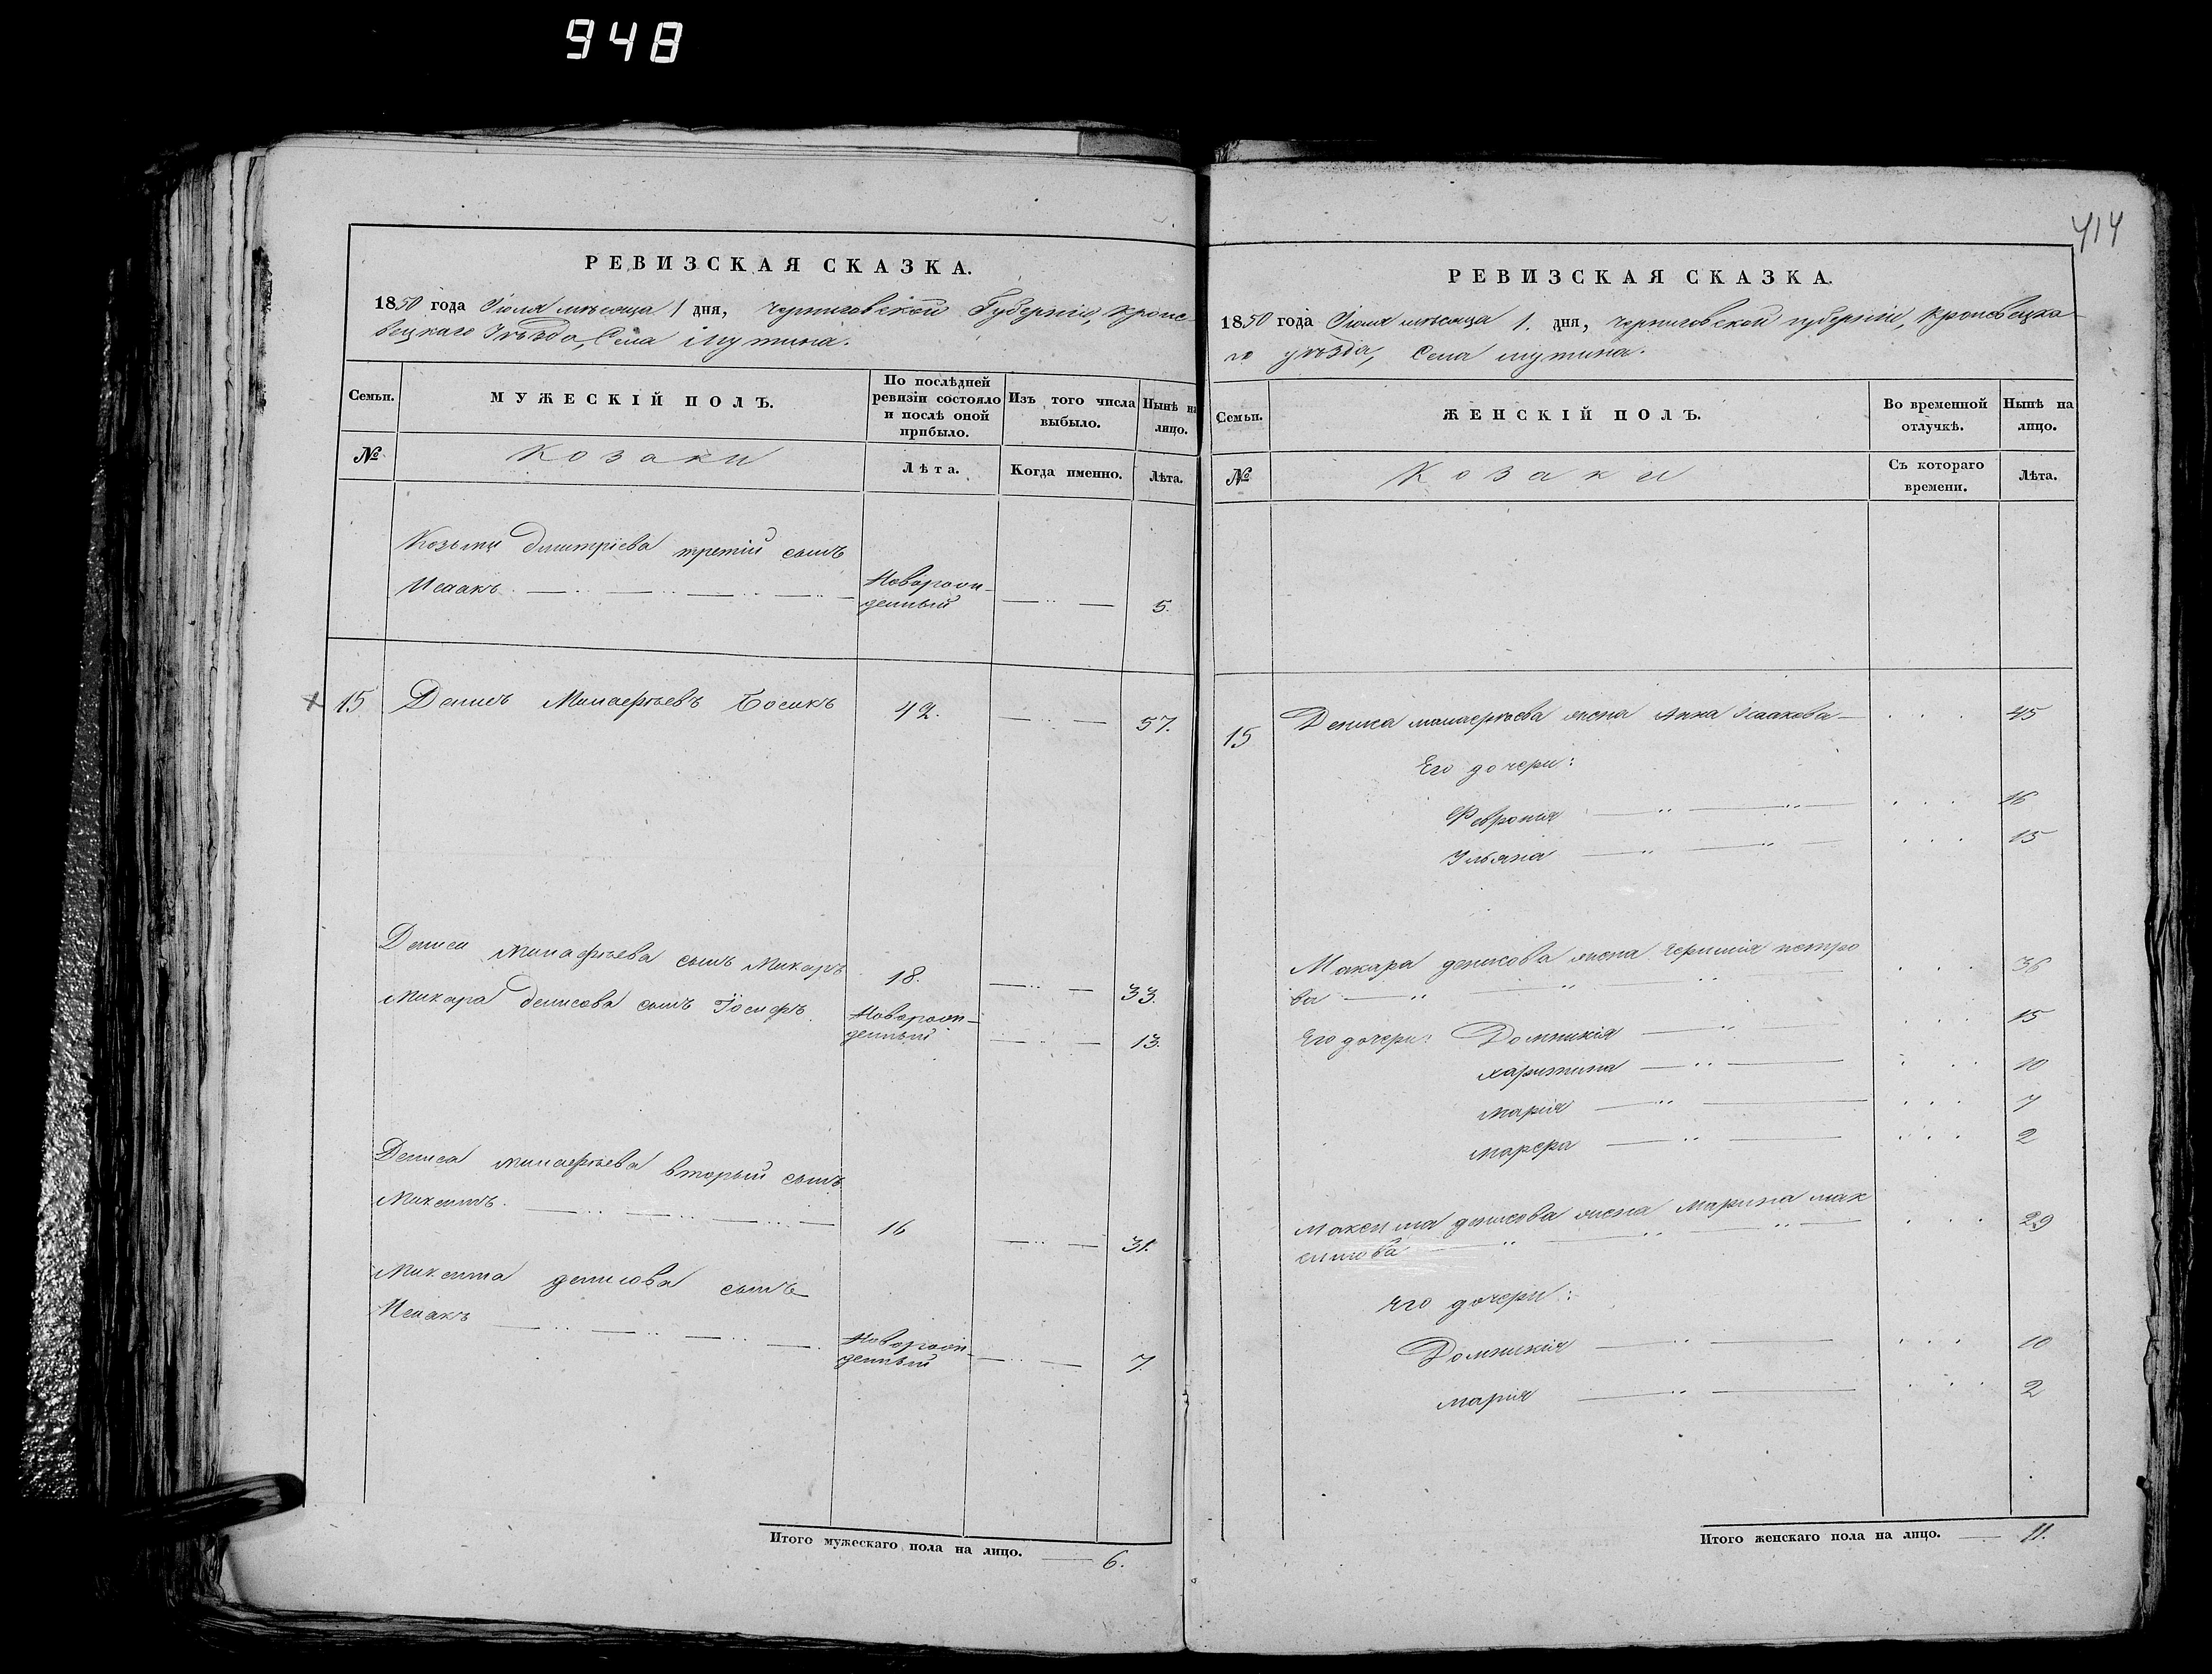 948
РЕВИЗСКАЯ СКАЗКА.
1850 года Іюля мѣсяца 1 дня, Черниговской Губерніи, Кроле-
вецкаго Уѣзда, Села Мутина.
Семьи.
МУЖЕСКІЙ ПОЛЪ.
По послѣдней
ревизіи состояло
и послѣ оной
прибыло.
Изъ того числа
выбыло.
Нынѣ на
лицо.
№
Козаки
Лѣта.
Когда именно.
Лѣта.
Козьмы Дмитріева третій сынъ
Исаакъ
Новорож-
денный
5.
15
Денисъ Минаефьевъ Босикъ
42.
57.
Дениса Минаефьева сынъ Макаръ
18.
33.
Макара Денисова сынъ Іосифъ.
Новорож-
денный
13.
Дениса Минаефьева вторый сынъ
Максимъ.
16
31.
Максима Денисова сынъ
Исаакъ
Новорож-
денный
7.
Итого мужескаго пола на лицо.
6.
414
РЕВИЗСКАЯ СКАЗКА.
1850 года Іюля мѣсяца 1. дня, Черниговской губерніи, Кролевецка-
го уѣзда, Села Мутина.
Семьи.
ЖЕНСКІЙ ПОЛЪ.
Во временной
отлучкѣ.
Нынѣ на
лицо.
№
Козаки
Съ котораго
времени.
Лѣта.
15
Дениса Минаефьева жена Анна Исаакова
45
Его дочери:
Февронія
16
Ульяна
15
Макара Денисова жена Петро
ва
36
Его дочери: Домникія
15
Харитина
10
Марія
7
Марфа
2
Максима Денисова жена Марина Мак
симова
29
Его дочери:
Домникія
10
Марія
2
Итого женскаго пола на лицо.
11.